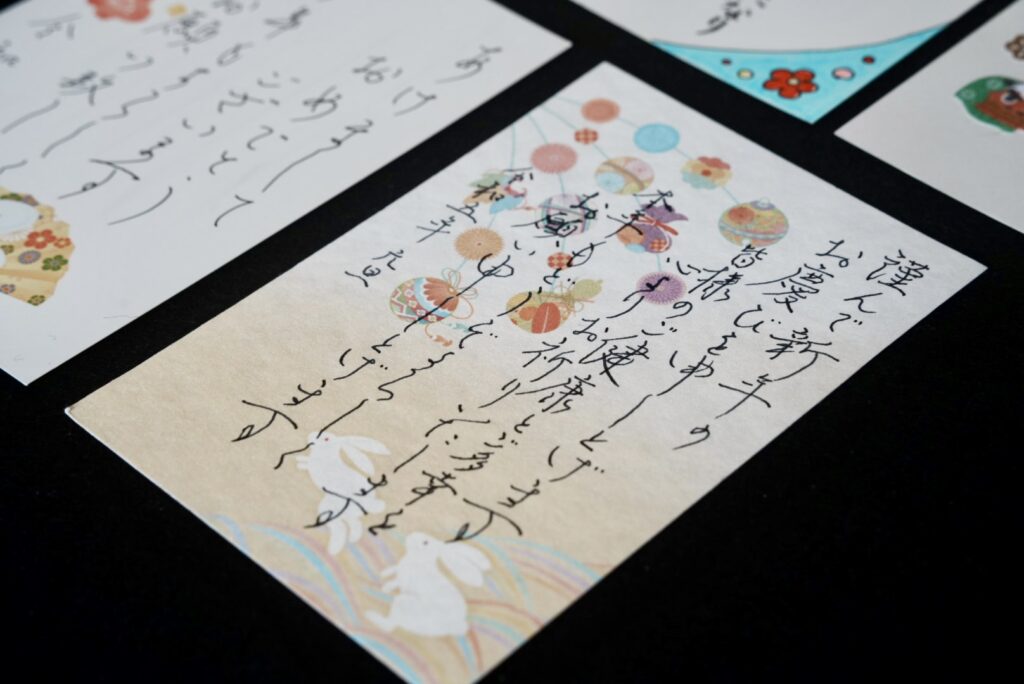 あけまして
おめでとう
ございます
年もよろしく
お願い致し
謹んで新年の
お慶びを申し上げます
皆様のご健康とご多幸を
心よりお祈りいたします
本年もどうぞよろしく
お願い申し上げます
令和五年 元旦